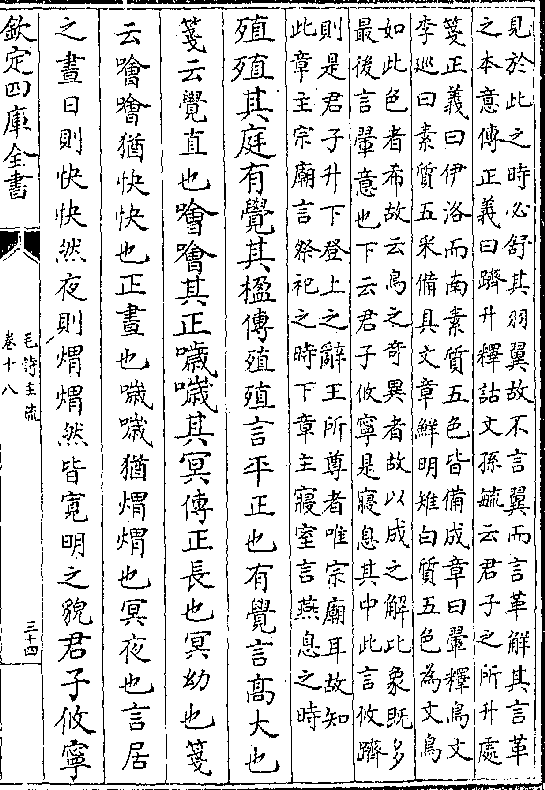 見於此之時必舒其羽翼故不言翼而言革解其言革
之本意傳正義曰躋升釋詁文孫毓云君子之所升處
箋正義曰伊洛而南素質五色皆備成章曰翬釋鳥文
李巡曰素質五采備具文章鮮明雉白質五色為文鳥
如此色者希故云鳥之奇異者故以成之解此象既多
最後言翬意也下云君子攸寧是寢息其中此言攸躋
則是君子升下登上之辭王所尊者唯宗廟耳故知
此章主宗廟言祭祀之時下章主寢室言燕息之時
殖殖其庭有覺其楹傳殖殖言平正也有覺言高大也
箋云覺直也噲噲其正噦噦其冥傳正長也冥幼也箋
云噲噲猶快快也正晝也噦噦猶煟煟也冥夜也言居
之晝日則快快然夜則煟煟然皆寛明之貌君子攸寧
欽定四庫全書
毛詩主疏
卷十八
三十四